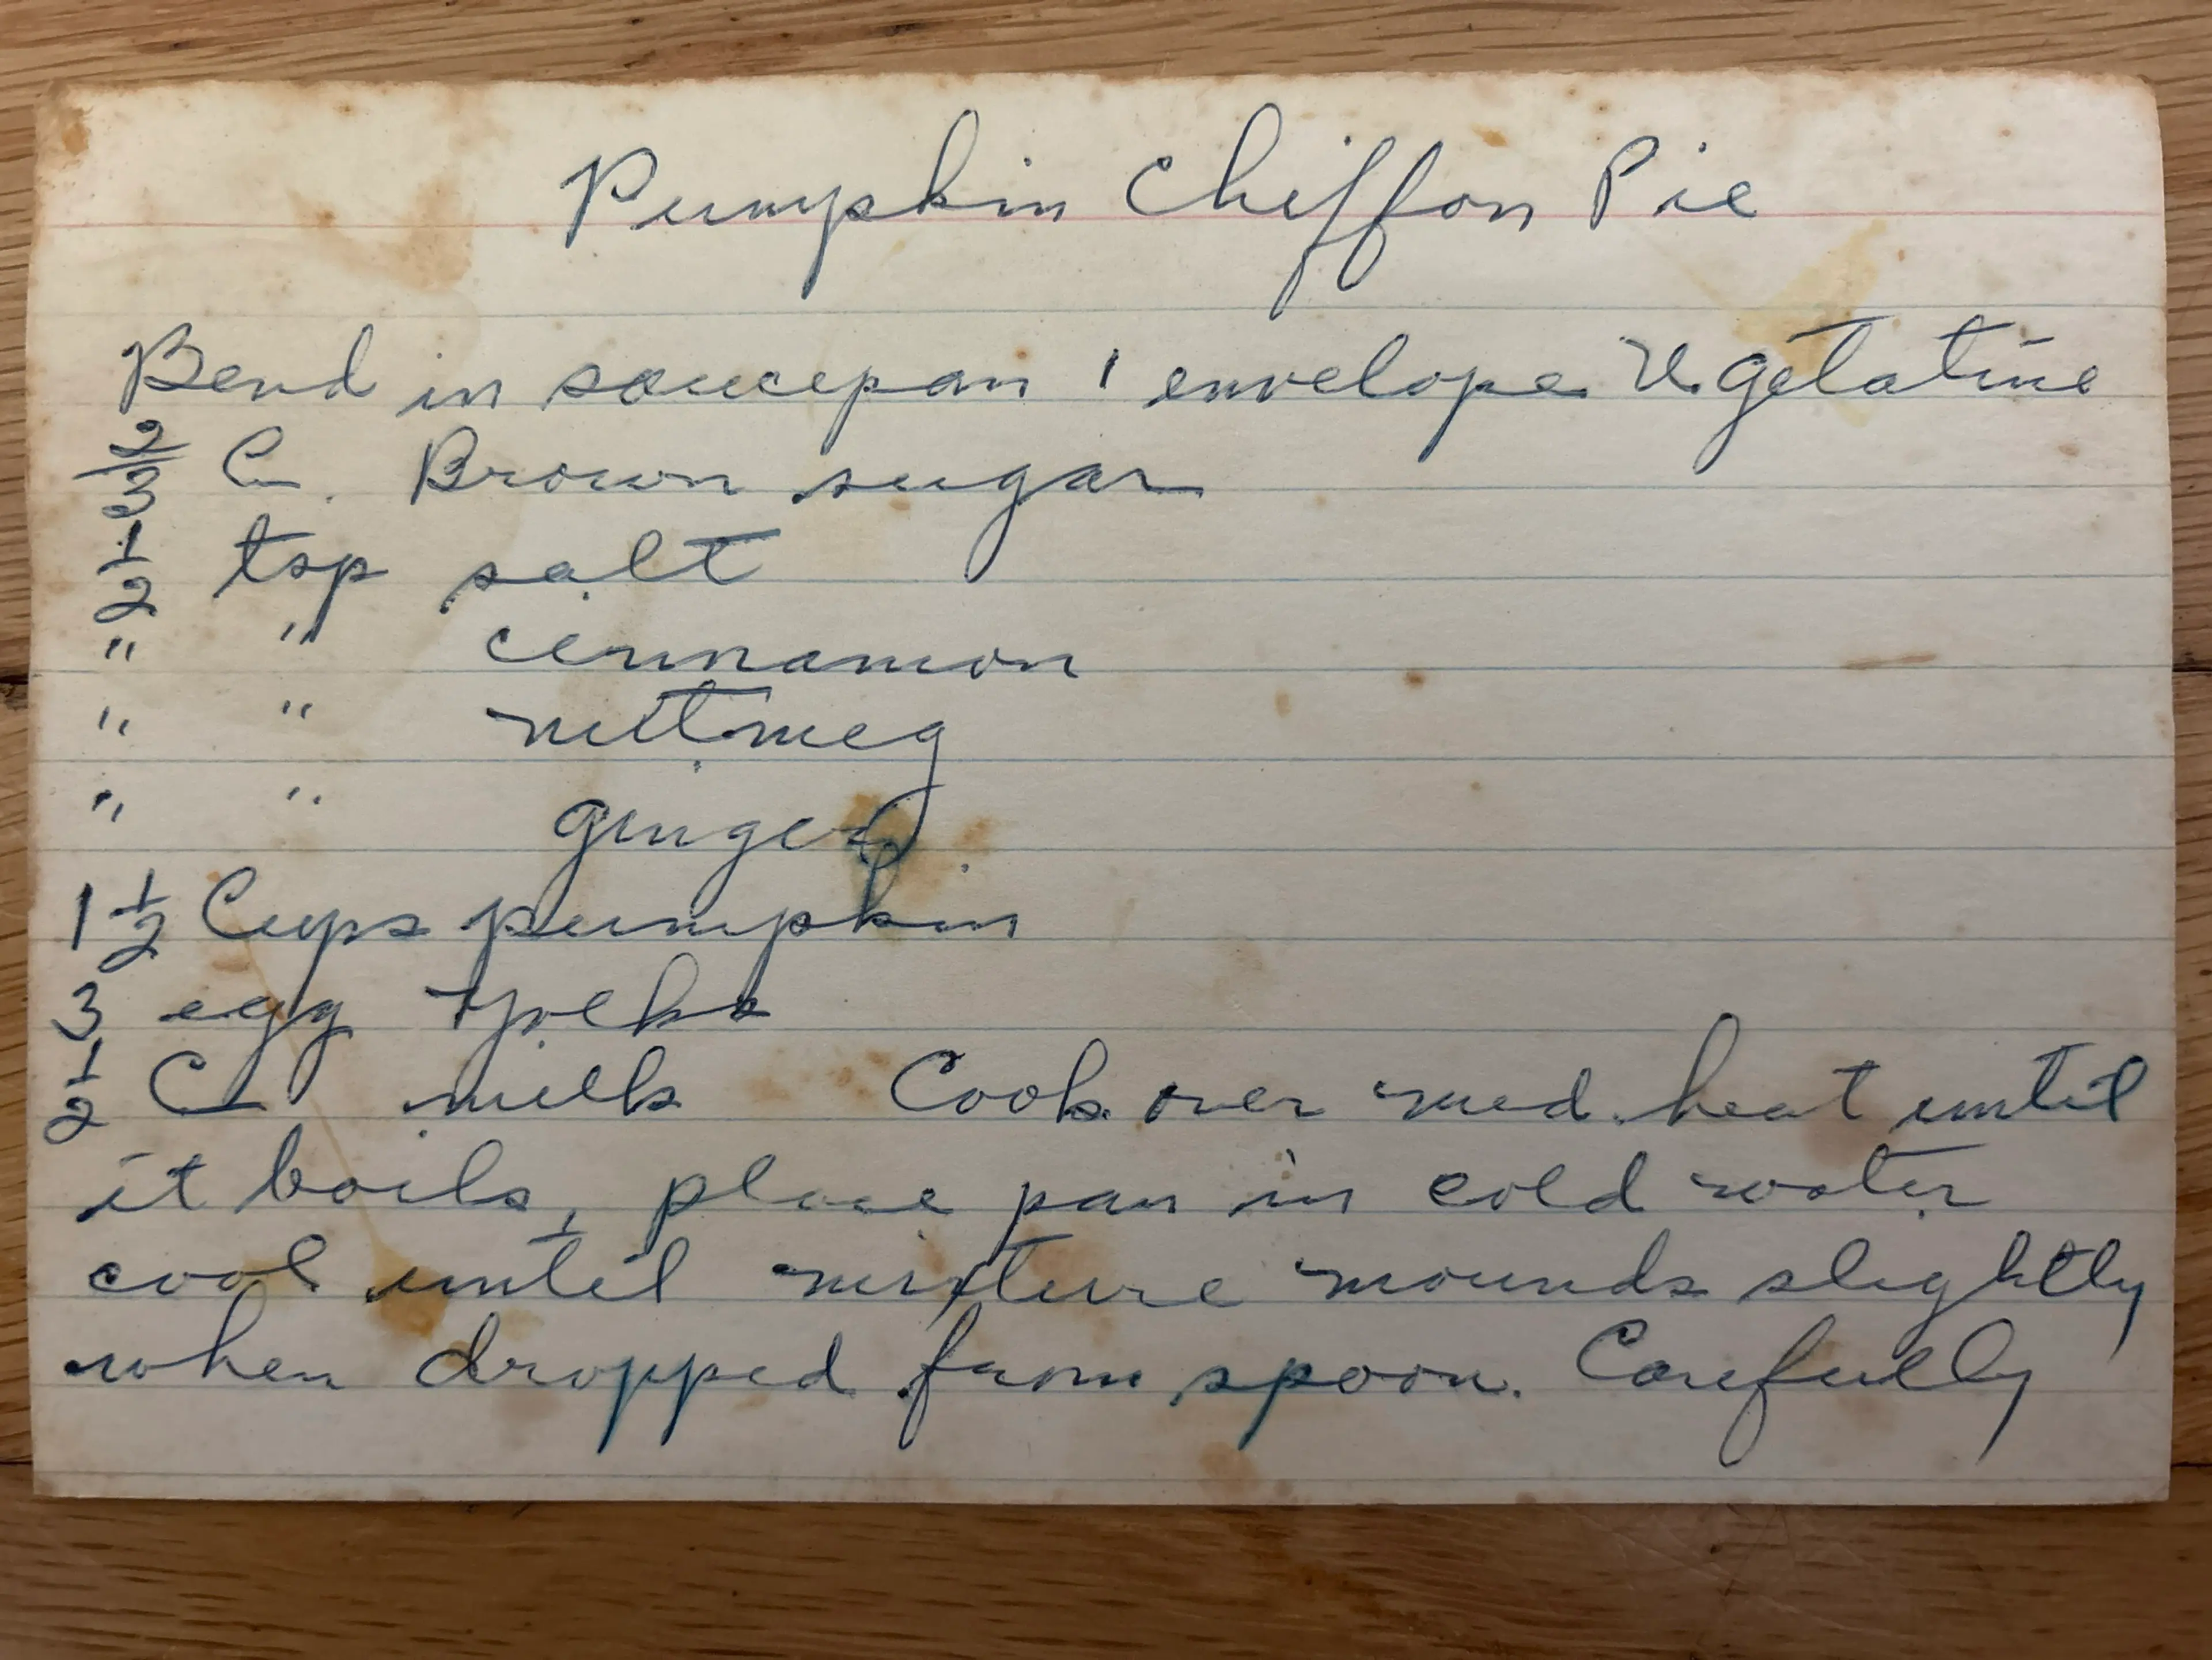 Pumpkin Chiffon Pie
Bend in saucepan 1 envelope U. Gelatine
2/3 C. Brown sugar
1/2 tsp salt
" " cinnamon
" " nutmeg
" " ginger
1 1/2 Cups pumpkin
3 egg yolks
1/2 C milk Cook over med. heat until
it boils, place pan in cold water
cool until mixture mounds slightly
when dropped from spoon. Carefully